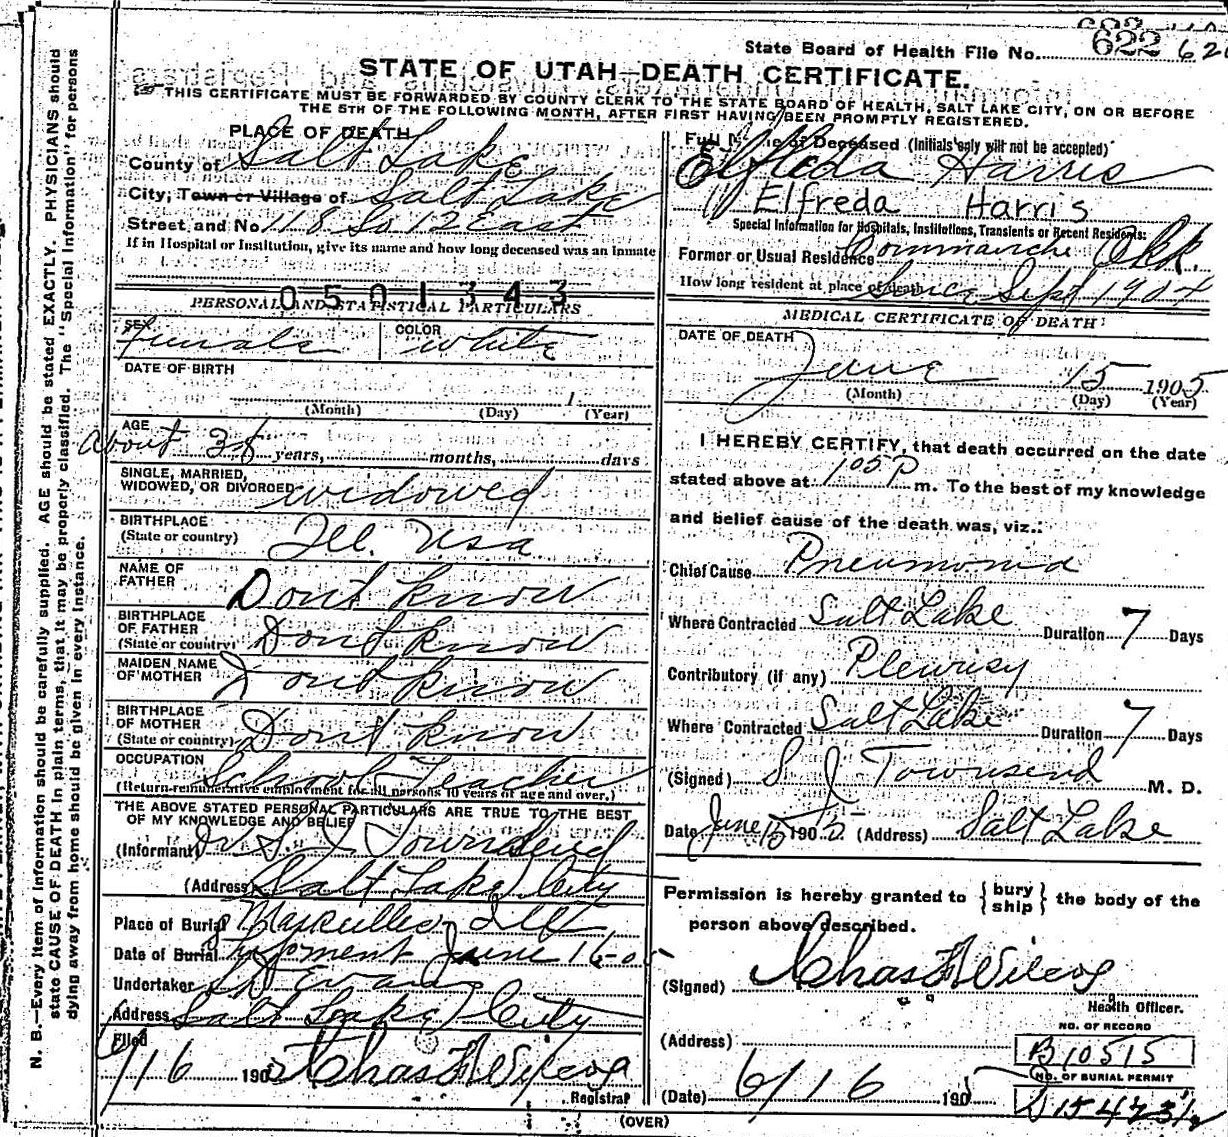 State Board of Health File No. 622
STATE OF UTAH—DEATH CERTIFICATE.
THIS CERTIFICATE MUST BE FORWARDED BY COUNTY CLERK TO THE STATE BOARD OF HEALTH, SALT LAKE CITY, ON OR BEFORE
THE 5TH OF THE FOLLOWING MONTH, AFTER FIRST HAVING BEEN PROMPTLY REGISTERED.
N. B.—Every item of information should be carefully supplied. AGE should be stated EXACTLY. PHYSICIANS should
state CAUSE OF DEATH in plain terms, that it may be properly classified. The "Special Information" for persons
dying away from home should be given in every instance.
PLACE OF DEATH
County of Salt Lake
City, Town or Village of Salt Lake
Street and No. 118 So 12 East
If in Hospital or Institution, give its name and how long deceased was an inmate
0501343
PERSONAL AND STATISTICAL PARTICULARS
SEX female COLOR white
DATE OF BIRTH
(Month) (Day) 1 (Year)
AGE
about 38 years, months, days
SINGLE, MARRIED,
WIDOWED, OR DIVORCED widowed
BIRTHPLACE
(State or country) Ill. Usa
NAME OF
FATHER Dont know
BIRTHPLACE
OF FATHER
(State or country) Dont know
MAIDEN NAME
OF MOTHER Dont know
BIRTHPLACE
OF MOTHER
(State or country) Dont know
OCCUPATION School Teacher
(Return remunerative employment for all persons 10 years of age and over.)
THE ABOVE STATED PERSONAL PARTICULARS ARE TRUE TO THE BEST
OF MY KNOWLEDGE AND BELIEF
(Informant) Dr S. J. Townsend
(Address) Salt Lake City
Place of Burial Marseilles Ill
Date of Burial Shipment June 16-05
Undertaker Evans
Address Salt Lake City
Filed
6/16 1905 Chas F Wilcox
Registrar
Full Name of Deceased (Initials only will not be accepted)
Elfreda Harris
Elfreda Harris
Special Information for Hospitals, Institutions, Transients or Recent Residents:
Former or Usual Residence Commanche Okl.
How long resident at place of death Since Sept 1904
MEDICAL CERTIFICATE OF DEATH
DATE OF DEATH
June 15 1905
(Month) (Day) (Year)
I HEREBY CERTIFY, that death occurred on the date
stated above at 105 P m. To the best of my knowledge
and belief cause of the death was, viz.:
Chief Cause Pneumonia
Where Contracted Salt Lake Duration 7 Days
Contributory (if any) Pleurisy
Where Contracted Salt Lake Duration 7 Days
(Signed) S. J. Townsend M. D.
Date June 15 1905 (Address) Salt Lake
Permission is hereby granted to { bury ship } the body of the
person above described.
(Signed) Chas F Wilcox
Health Officer.
(Address)
NO. OF RECORD
B10515
(Date) 6/16 1905
NO. OF BURIAL PERMIT
(OVER)